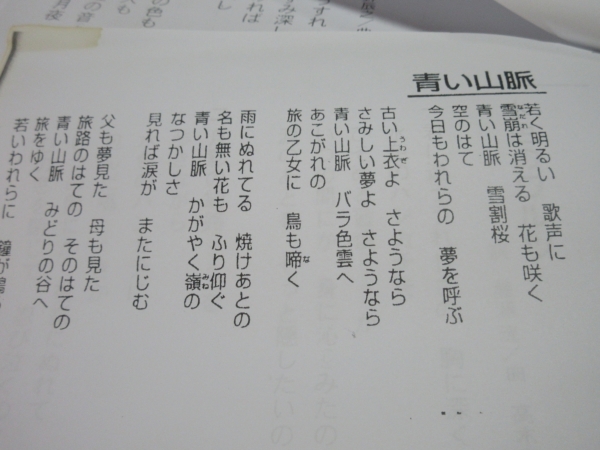 青い山脈
若く明るい　歌声に
雪崩は消える　花も咲く
青い山脈　雪割桜
空のはて
今日もわれらの　夢を呼ぶ
古い上衣よ　さようなら
さみしい夢よ　さようなら
青い山脈　バラ色雲へ
あこがれの
旅の乙女に　鳥も啼く
雨にぬれてる　焼けあとの
名も無い花も　ふり仰ぐ
青い山脈　かがやく嶺の
なつかしさ
見れば涙が　またにじむ
父も夢見た　母も見た
旅路のはての　そのはての
青い山脈　みどりの谷へ
旅をゆく
若いわれらに　鐘が鳴る